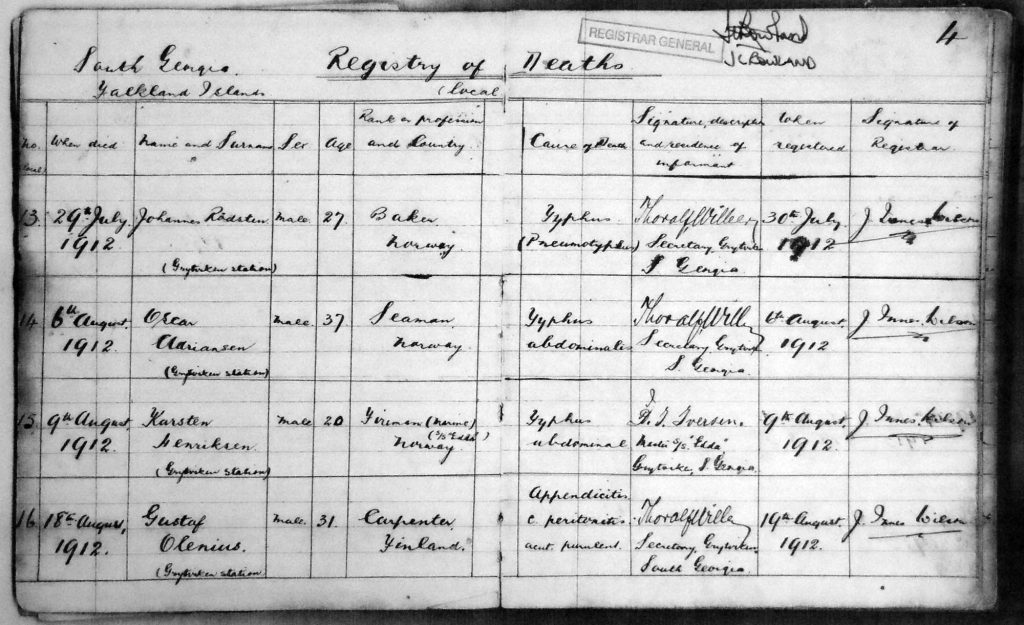 4
REGISTRAR GENERAL
J C ROWLAND
South Georgia.
Falkland Islands
Registry of Deaths
(Local
No. When died Name and Surname Sex Age Rank or profession and Country Cause of Death Signature, description and residence of informant When registered Signature of Registrar
13 29th July 1912 Johannes Rödsten (Grytviken station) Male 27. Baker Norway Typhus (Pneumotyphus) Thoralf Wille, Secretary, Grytviken S Georgia 30th July 1912 J Innes Wilson
14 6th August. 1912. Oscar Adriansen (Grytviken station) Male 37 Seaman. Norway. Typhus abdominalis Thoralf Wille Secretary, Grytviken S. Georgia 6th August. 1912 J Innes Wilson
15 9th August 1912. Karsten Henriksen (Grytviken station) Male 20 Fireman (Marine) (S/S "Edda") Norway Typhus abdominal Iversen. Master S/S "Edda" Grytviken, S. Georgia 9th August, 1912 J Innes Wilson
16. 18th August, 1912. Gustaf Olenius. (Grytviken station Male. 31. Carpenter Finland. Appendicitis c. peritonitis acut. purulent. Thoralf Wille Secretary, Grytviken South Georgia 19th August. 1912. J. Innes Wilson